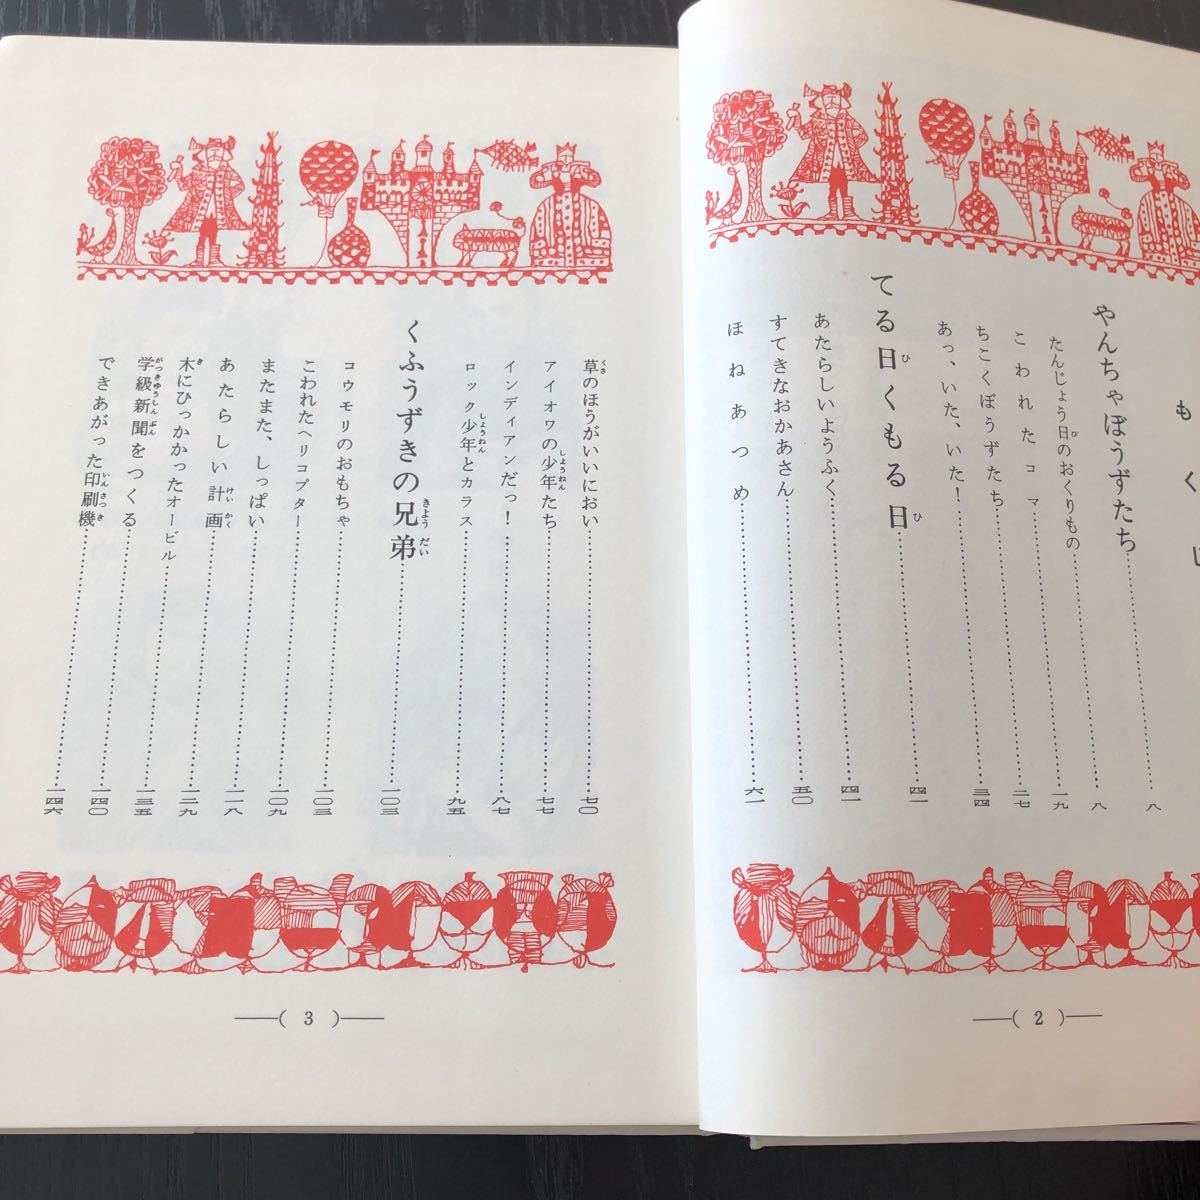 もくじ
やんちゃぼうずたち……八
たんじょう日のおくりもの……八
こわれたコマ……一九
ちこくぼうずたち……二七
あっ、いた、いた！……三四
てる日くもる日……四一
あたらしいようふく……四一
すてきなおかあさん……五〇
ほねあつめ……六一
（2）
草のほうがいいにおい……七〇
アイオワの少年たち……七七
インディアンだっ！……八七
ロック少年とカラス……九五
くふうずきの兄弟……一〇三
コウモリのおもちゃ……一〇三
こわれたヘリコプター……一〇九
またまた、しっぱい……一一八
あたらしい計画……一二九
木にひっかかったオービル……一三五
学級新聞をつくる……一四〇
できあがった印刷機……一四六
（3）